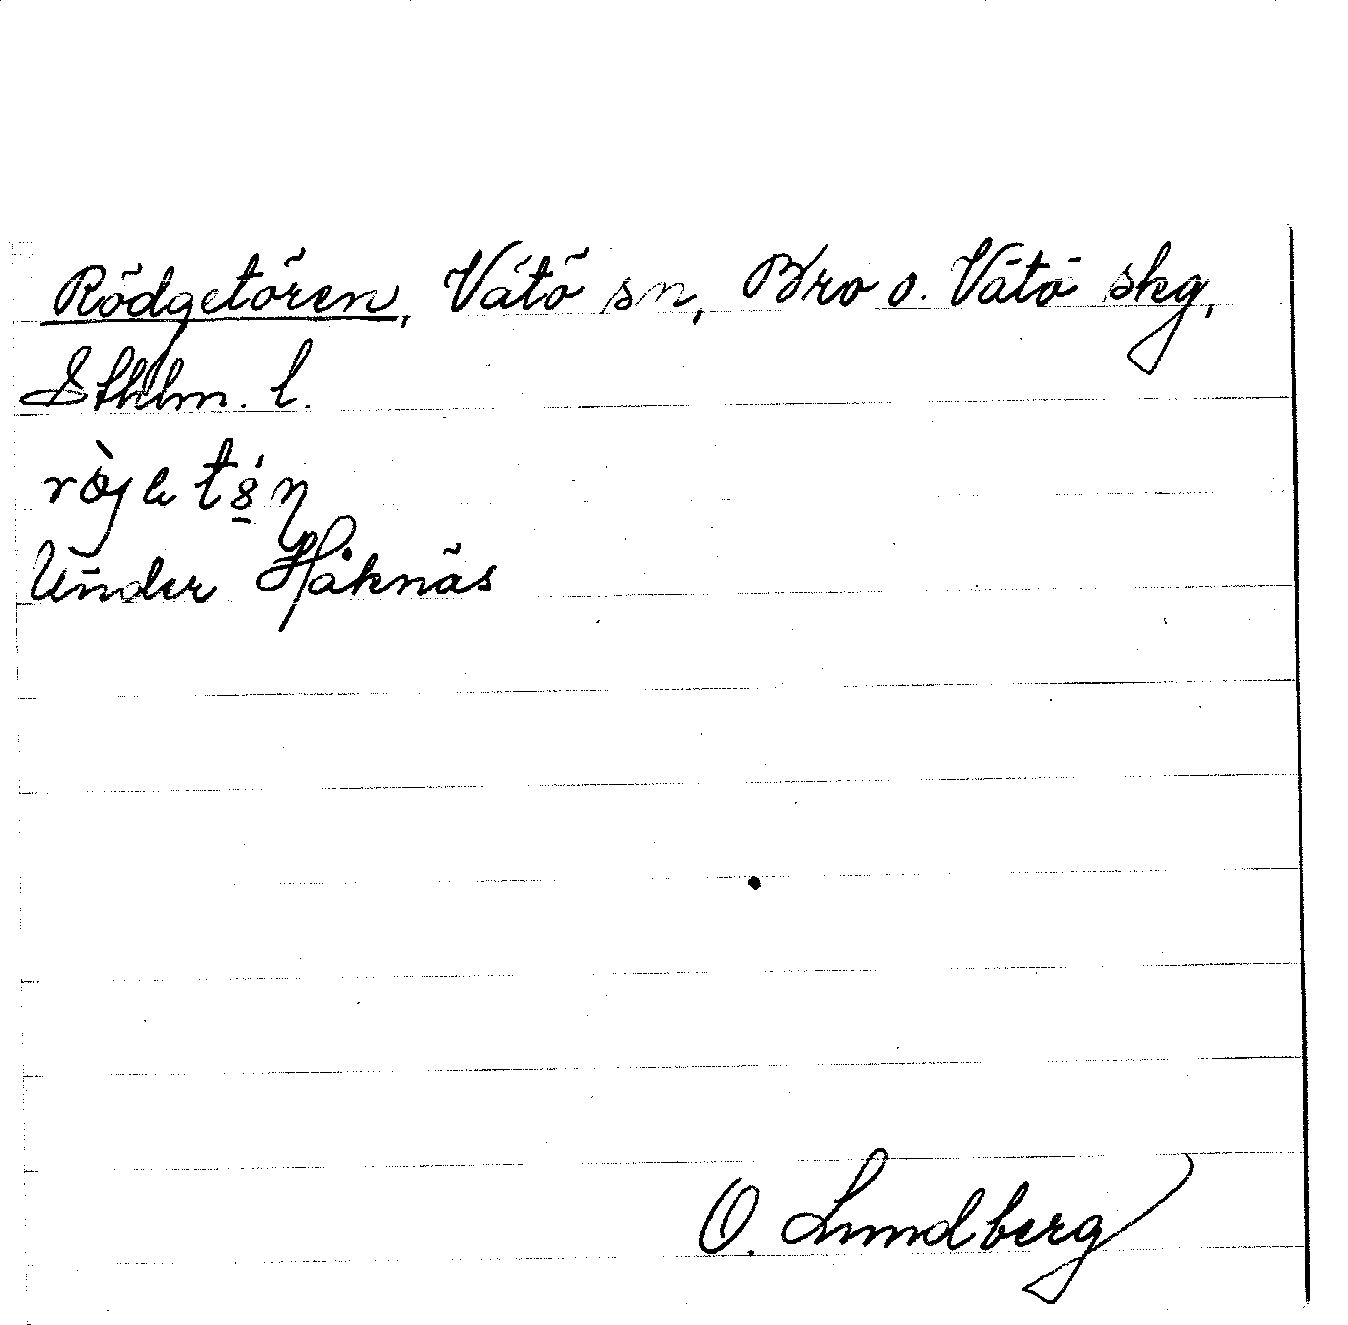 Rödgetören, Vätö sn, Bro o. Vätö skg,
Sthlm. l.
Under Håknäs
O. Lundberg